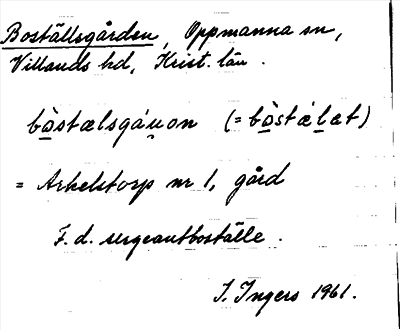 Boställsgården, Oppmanna sn,
Villands hd, Krist. län.
bò̲stælsgáu̯on (= bò̲stǽl̲æt)
= Arkelstorp nr 1, gård
F.d. sergeantboställe.
I. Ingers 1961.